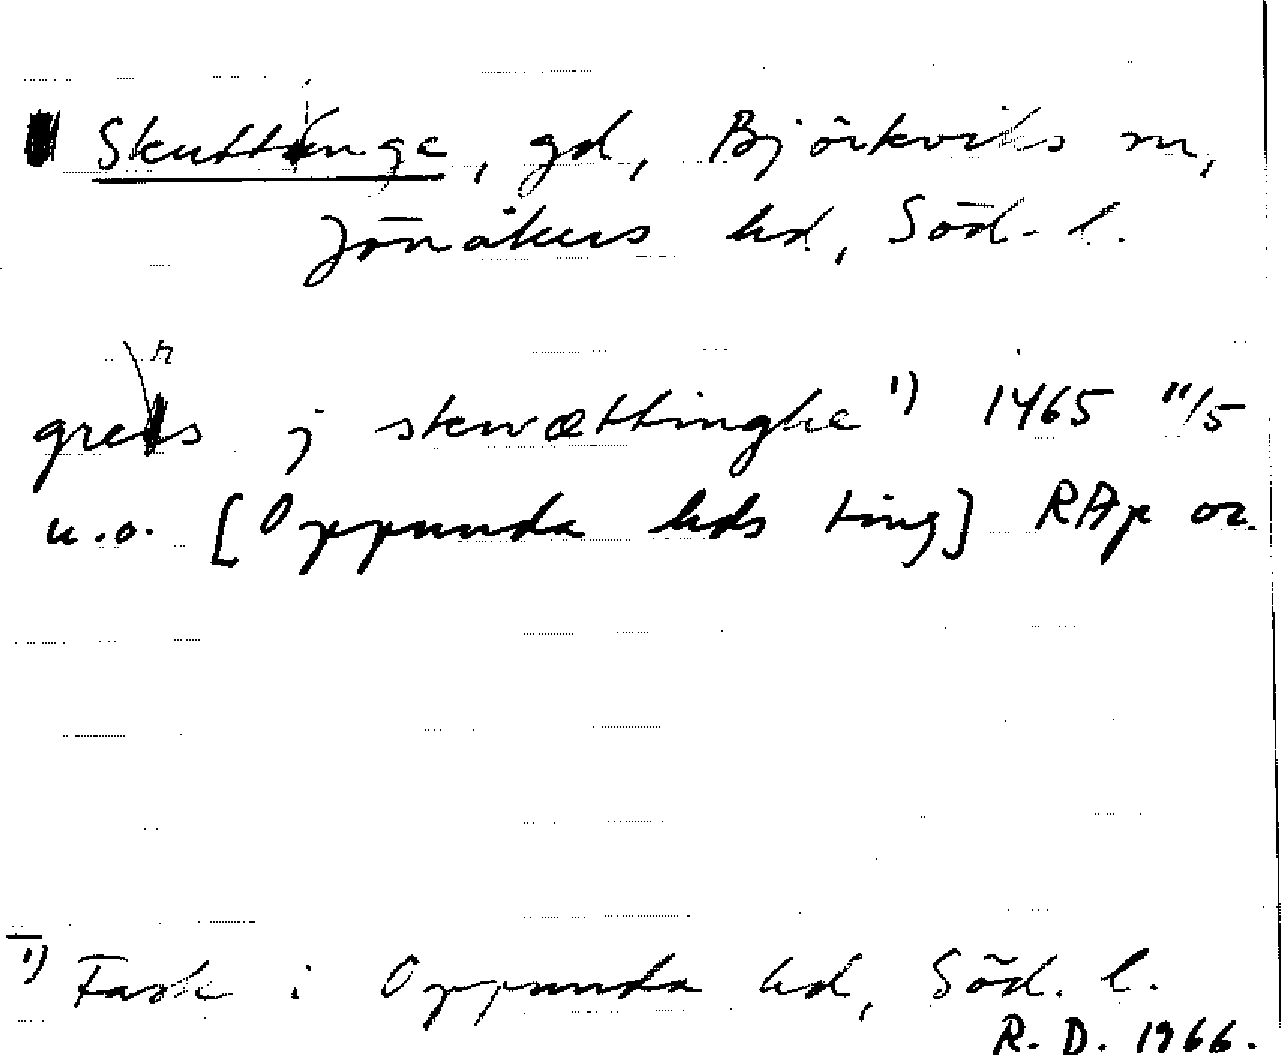 Skuttinge, gd, Björkviks sn,
Jönåkers hd, Söd. l.
grens j skwættinghe 1) 1465 11/5
u.o. [Oppunda hds ting] RAp or.
1) Fastk i Oppunda hd, Söd. l.
R. D. 1966.